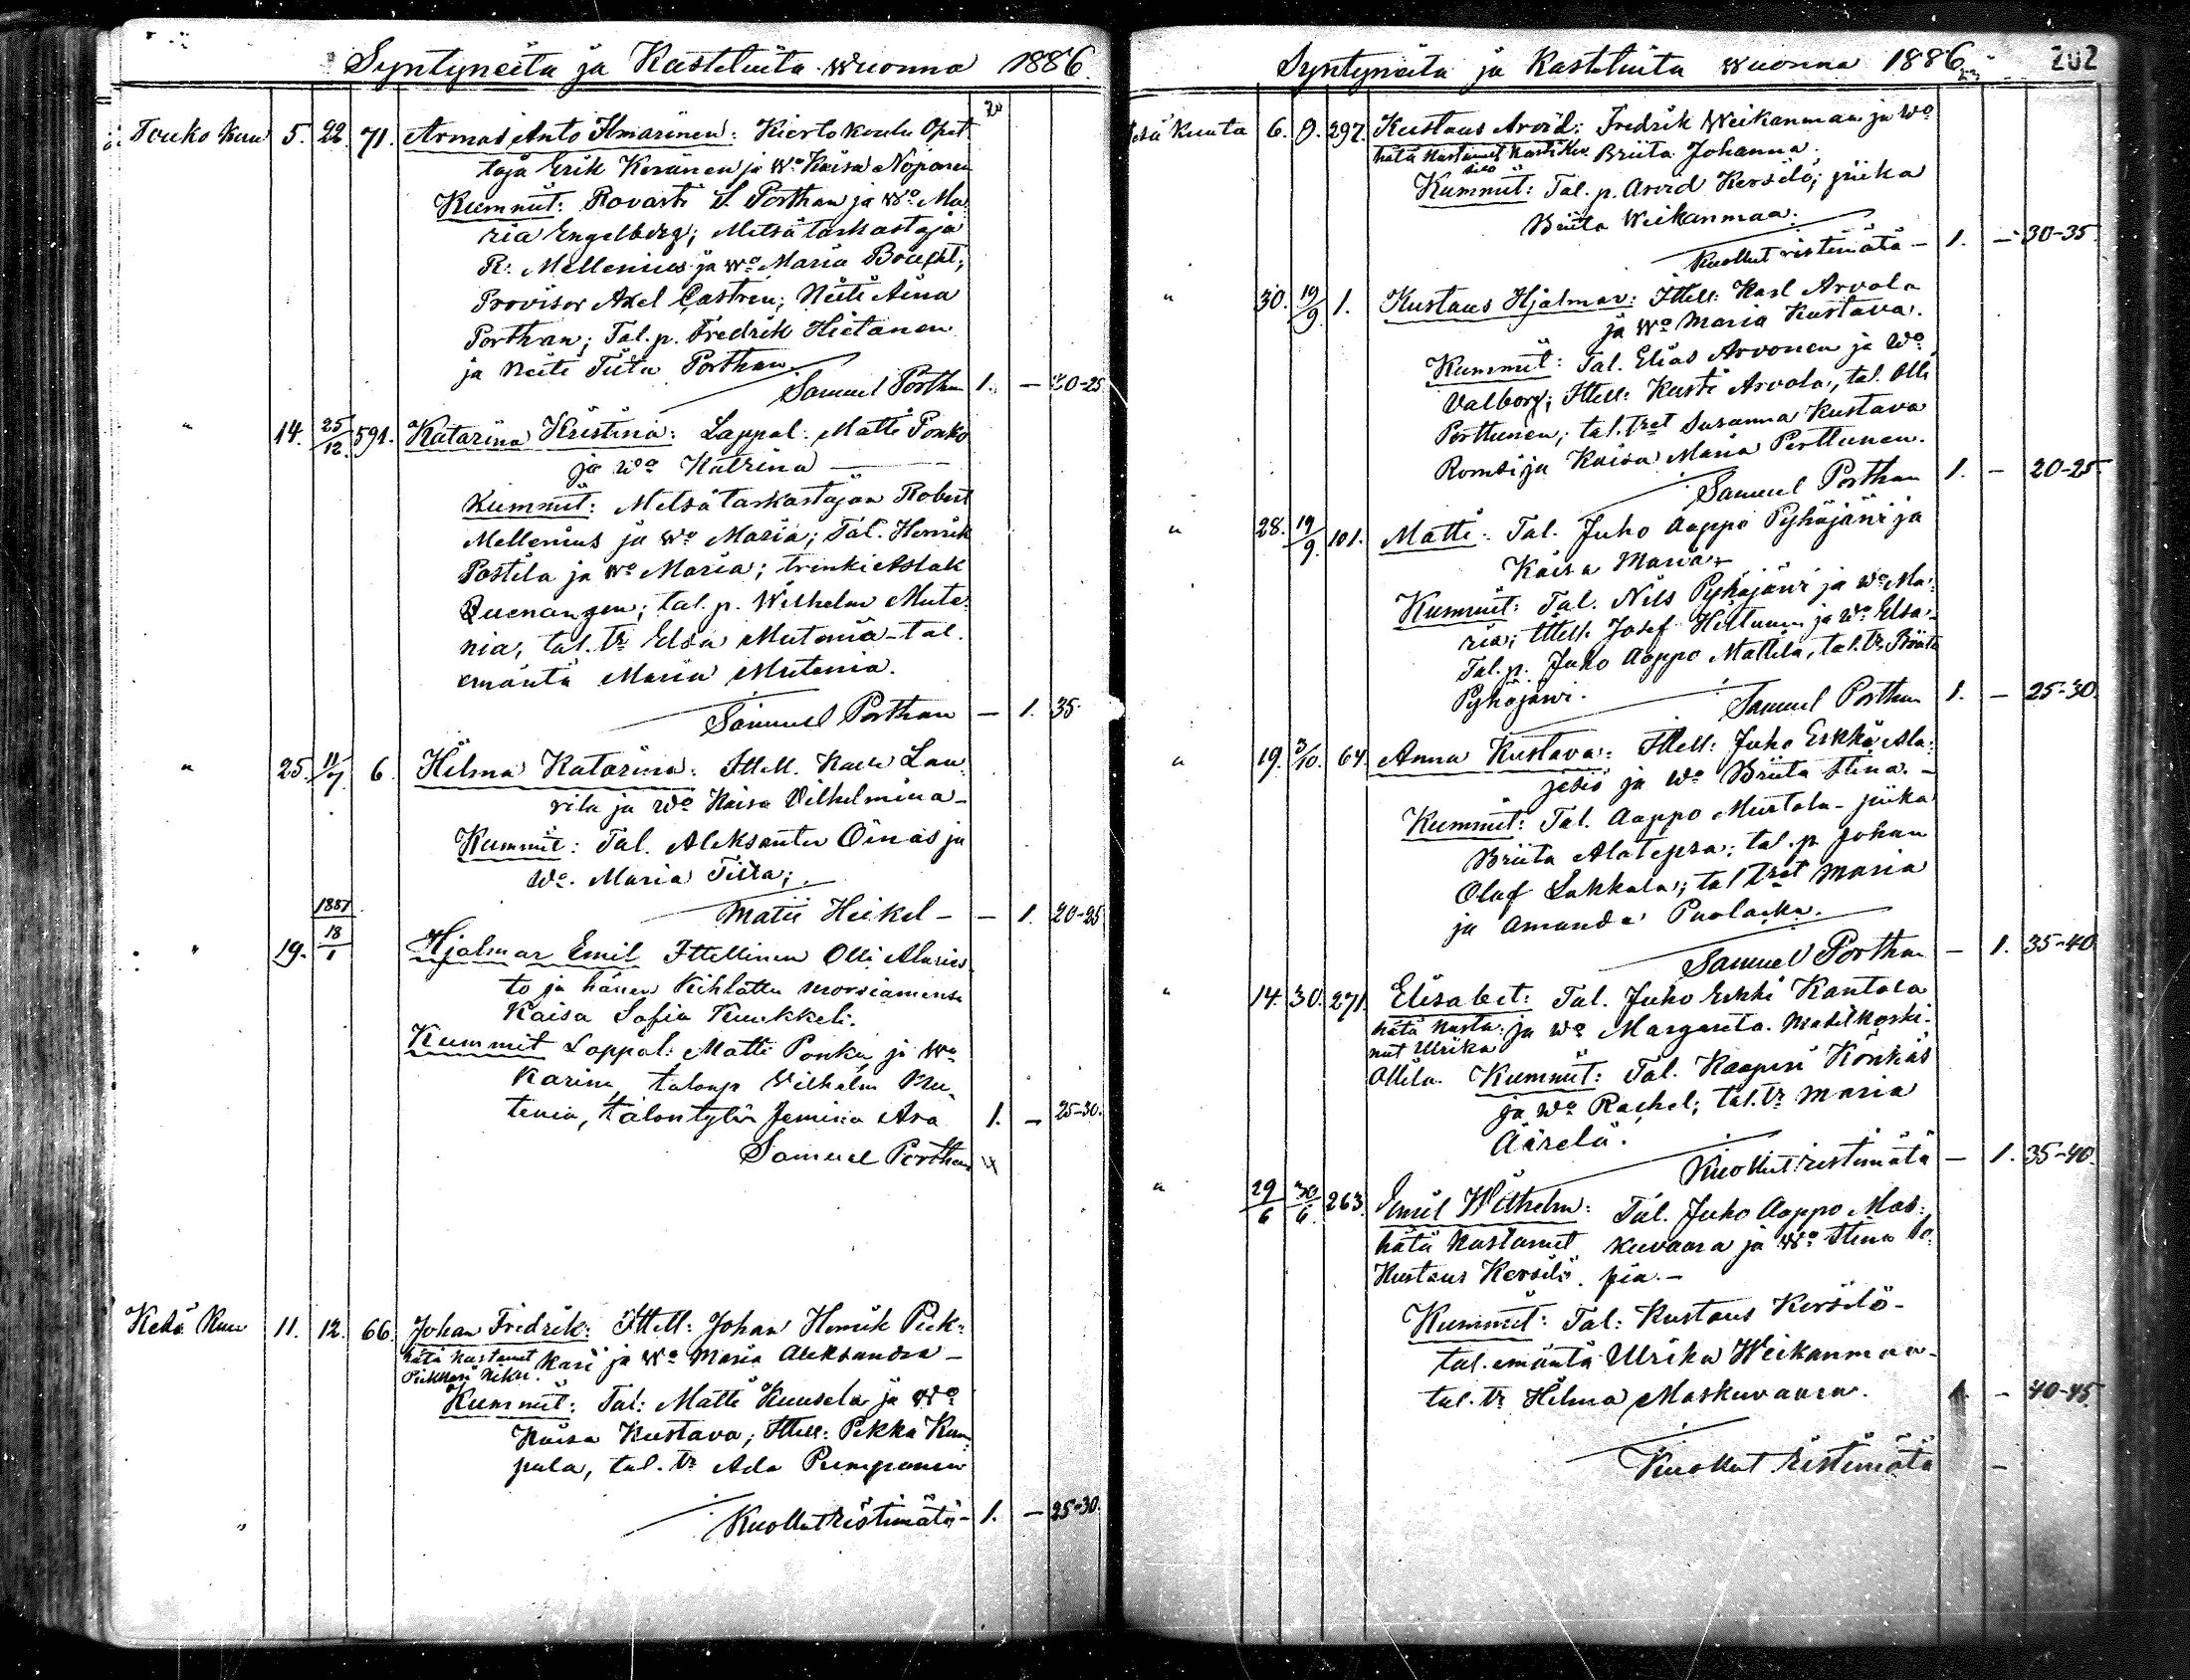 Syntyneitä ja Kastetuita wuonna 1886.
Touko kuu 5. 22. 71. Armas Anto Ilmarinen: Kiertokoulu Opet-
taja Erik Keränen ja Wo Kaisa Noponen
Kummit: Rovasti S. Porthan ja Wo Ma-
ria Engelberg; Metsätarkastaja
R. Mellenius ja Wo Maria Boucht;
Provisor Axel Castrén; Neiti Aina
Porthan; Tal. p. Fredrik Hietanen
ja Neiti Tiita Porthan
Samuel Porthan 1. — 20-25
" 14. 25/12. 591. Katarina Kristina: Lappal: Matti Ponko
ja Wo Katrina —
Kummit: Metsätarkastajan Robert
Mellenius ja Wo Maria; Tal. Henrik
Postila ja Wo Maria; trenki Aslak
Quenangen; tal. p. Wilhelm Mute-
nia, tal. tr Elsa Mutenia - tal.
emäntä Maria Mutenia.
Samuel Porthan — 1. 35.
" 25. 11/7. 6. Hilma Katarina: Ittell. Kalle Lau-
rila ja Wo Kaisa Vilhelmina -
Kummit: Tal. Aleksanter Oinas ja
Wo. Maria Tiita;
Matti Heikel - — 1. 20-25
1887
" 19. 18/1 Hjalmar Emil Ittellinen Olli Alaries-
to ja hänen kihlattu morsiamensa
Kaisa Sofia Kuukkeli.
Kummit Lappal: Matti Ponku ja Wo
Karin, talonp Vilhelm Mu-
tenia, talontytär Jemina Ara 1. — 25-30.
Samuel Porthan
Kesä Kuu 11. 12. 66. Johan Fridrik: Ittell: Johan Henrik Piek-
hätä kastanut kari ja Wo Maria Aleksandra -
Piekkari Heku.
Kummit: Tal: Matti Kuusela ja Wo
Kaisa Kustava; Ittell: Pekka Kum-
pula, tal. tr Ada Pumpanen
Kuollut ristimätä - 1. — 25-30.
Syntyneitä ja Kastetuita wuonna 1886. 202
Kesä Kuuta 6. 9. 297. Kustaus Arvid: Fredrik Weikanmaa ja Wo
hätä kastanut Briita Johanna.
Kummit: Tal. p. Arvid Kersilö; piika
Briita Weikanmaa.
Kuollut ristimätä - 1. — 30-35.
" 30. 19/9. 1. Kustaus Hjalmar: Ittell: Karl Arvola
ja Wo Maria Kustava.
Kummit: Tal. Elias Arvonen ja Wo
Valborg; Ittell: Kusti Arvola, tal. Olli
Perttunen; tal. tret Susanna Kustava
Romsi ja Kaisa Maria Perttunen.
Samuel Porthan 1. — 20-25.
" 28. 19/9. 101. Matti: Tal. Juho Aappo Pyhäjärvi ja
Kaisa Maria.
Kummit: Tal. Nils Pyhäjärvi ja Wo Ma-
ria; Ittell. Josef Hiltunen ja Wo Elsa;
Tal. p. Juho Aappo Mattila, tal. tr. Briita
Pyhäjärvi.
Samuel Porthan 1. — 25-30.
" 19. 3/10. 64. Anna Kustava: Ittell: Juho Erkki Ala-
jesiö ja Wo Briita Stina. -
Kummit: Tal. Aappo Murtola - piika
Briita Alatepsa; tal. p. Johan
Olaf Lakkala; tal tret Maria
ja Amanda Puolakka.
Samuel Porthan — 1. 35-40
" 14. 30. 271. Elisabet: Tal. Juho Erkki Kantola
hätä kasta- ja Wo Margareta Matilkoski.
nut Ulrika
Ollila. Kummit: Tal. Kaaperi Könkäs
ja Wo Rachel; tal. tr Maria
Äärelä.
Kuollut ristimätä — 1. 35-40.
" 29/6 30/6. 263. Emil Wilhelm: Tal. Juho Aappo Mas-
hätä kastanut kuvaara ja Wo Stina So-
Kustaus Kersilö. fia. -
Kummit: Tal: Kustaus Kersilö -
tal. emäntä Ulrika Weikanmaa -
tal. tr Hilma Maskuvaara. 1. — 40-45.
Kuollut ristimätä —